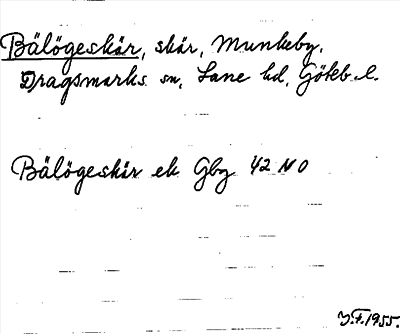 Bälögeskär, skär, Munkeby.
Dragsmarks sn, Lane hd, Göteb. l.
Bälögeskär ek Gbg 42 NO
Y.F. 1955.